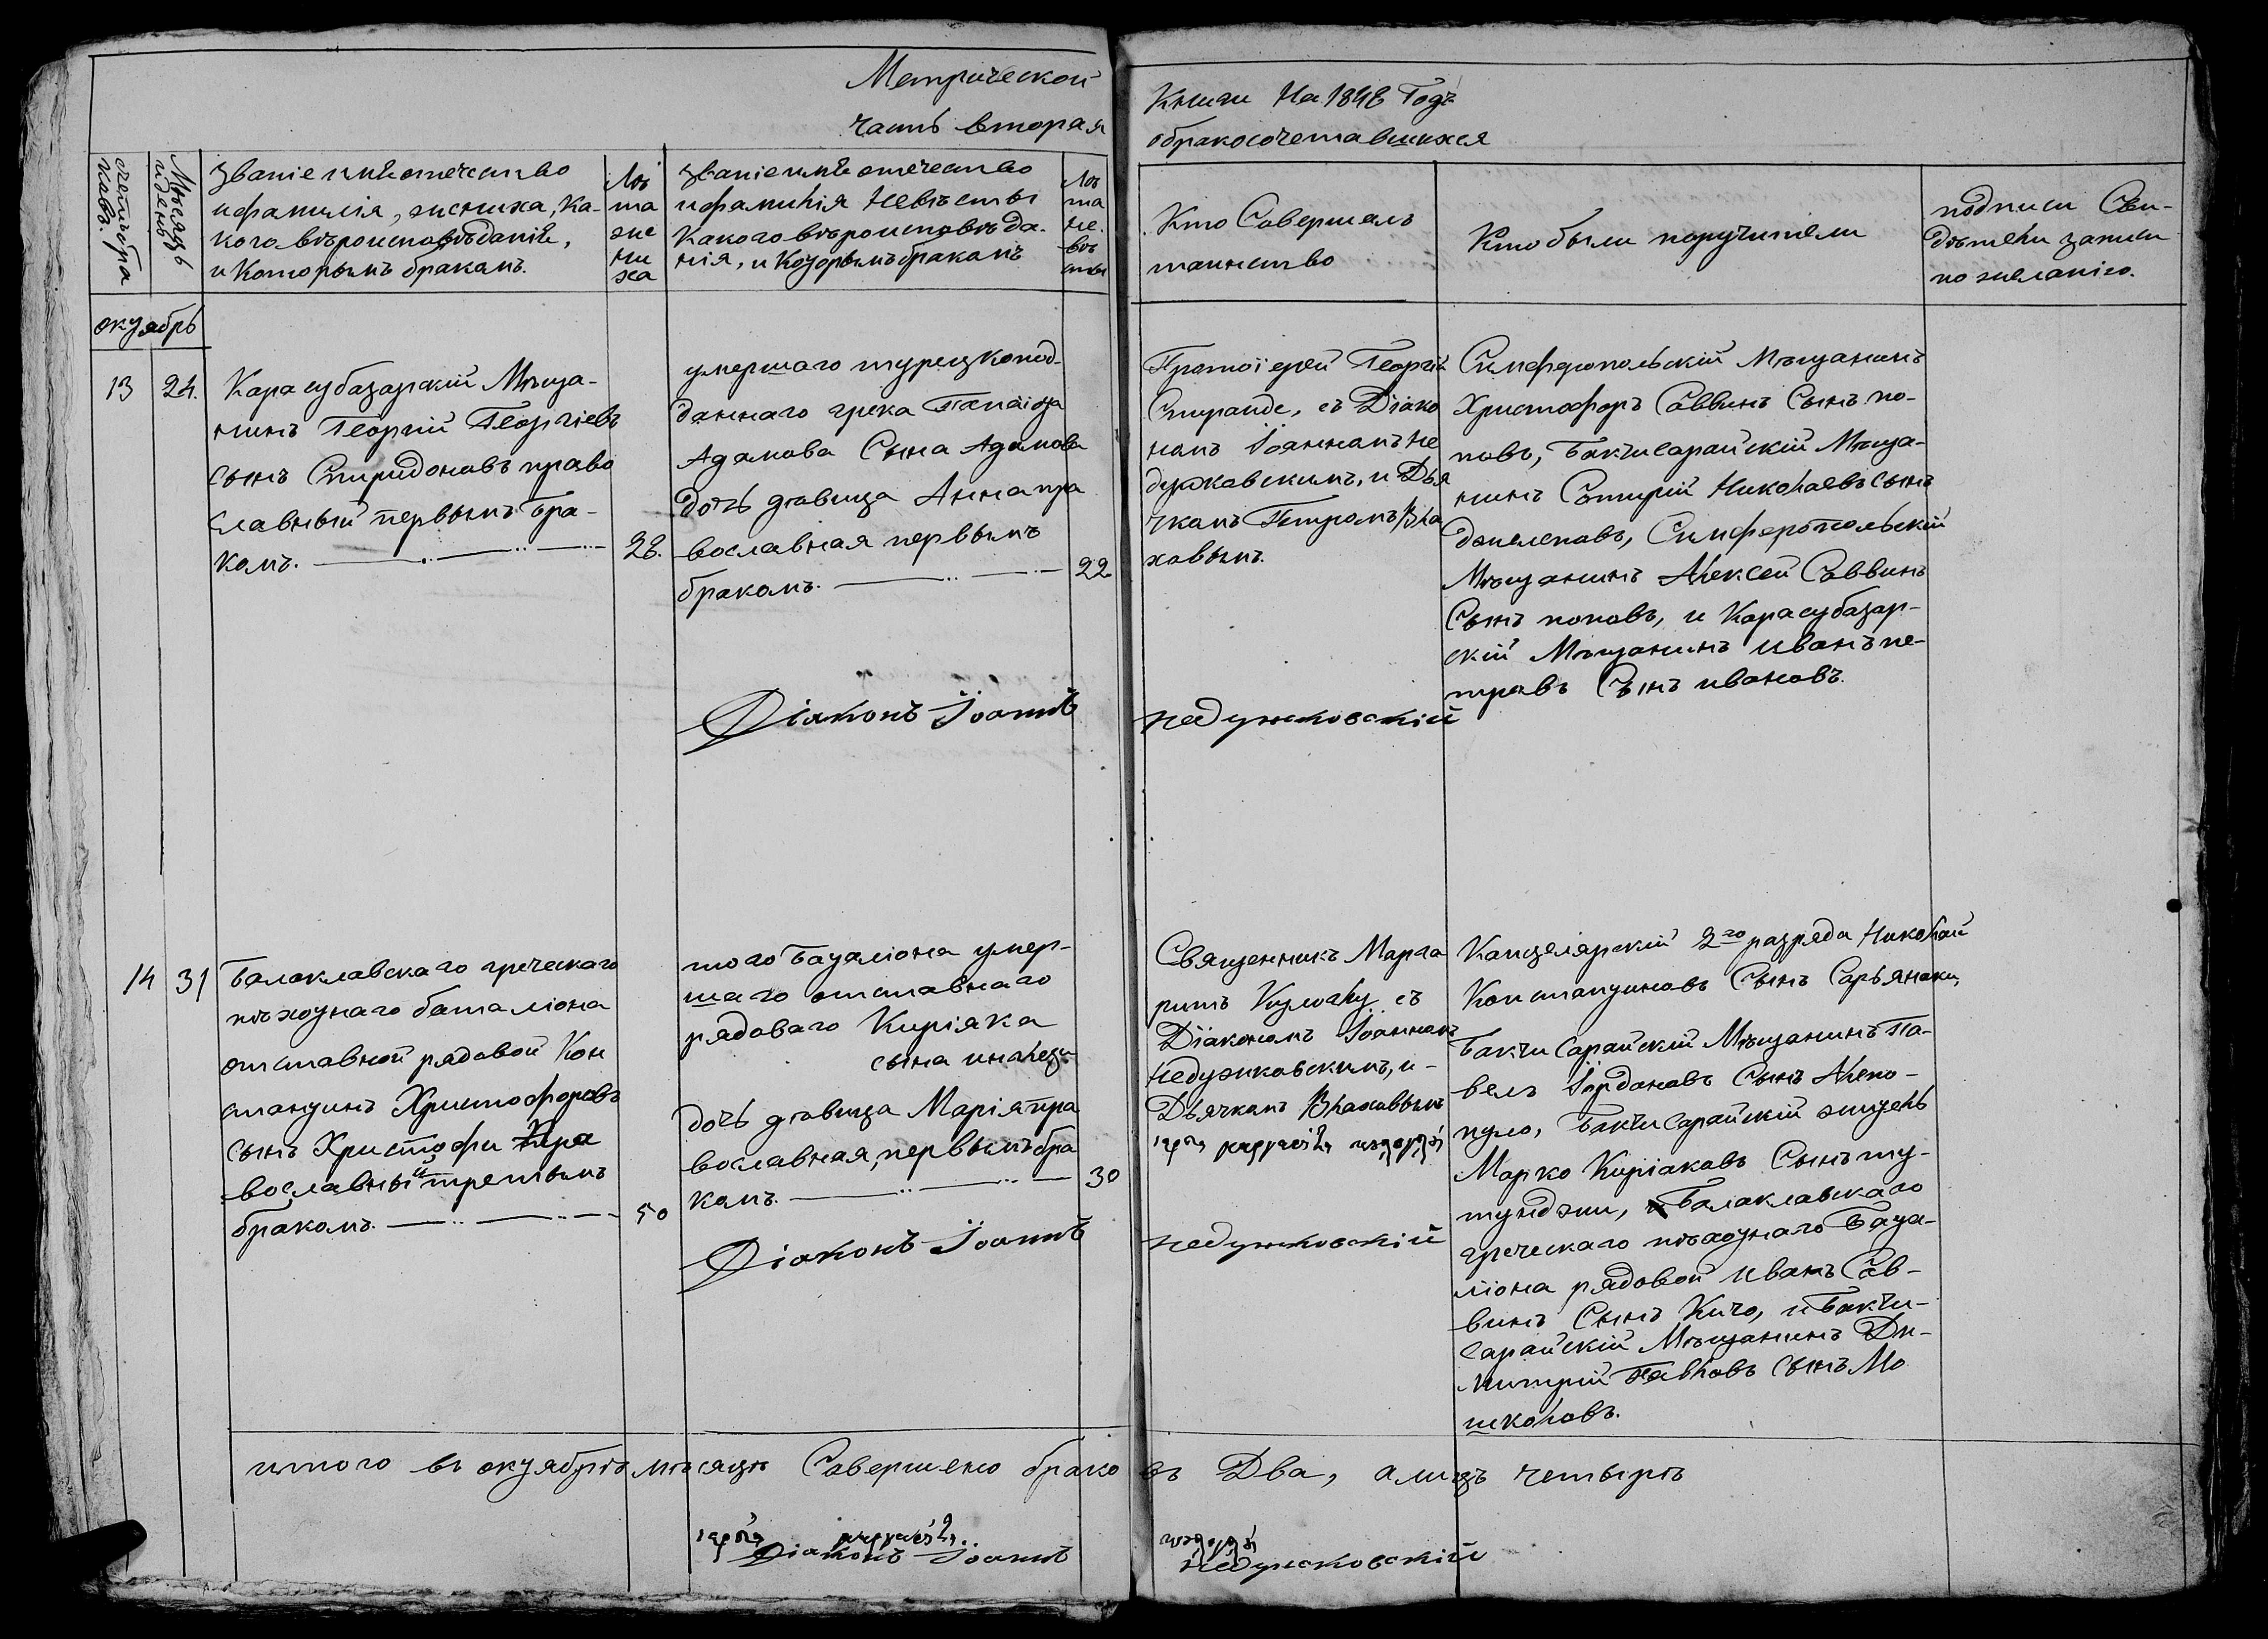 Метрической
часть вторая
Книги На 1848 Годъ
обракосочетавшихся
счетъ бра
ковъ.
Мѣсяцъ
и день
Званіе имя отечество
и фамилія, жениха, ка-
кого вѣроисповѣданія,
и Которымъ бракомъ.
Лѣ
та
же
ни
ха
Званіе имя отечество
и фамилія Невѣсты
Какого вѣроисповѣда-
нія, и Которымъ бракомъ
Лѣ
та
не-
вѣ
сты
Кто Совершалъ
таинство
Кто были поручители
подписи Сви-
дѣтелй записи
по желанію.
октябрь
13
24.
Карасубазарскій Мѣща-
нинъ Георгій Георгіевъ
сынъ Спиридоновъ право
славный первымъ бра-
комъ.
28.
умершаго турецкопод-
даннаго грека Панаіота
Адамова Сына Адамова
дочь дѣвица Анна пра
вославная первымъ
бракомъ.
22
Протоіерей Георгій
Спиранде, съ Діако
номъ Іоанномъ Не
дужковскимъ, и Дья
чкомъ Петромъ Вла
ховымъ.
Симферопольскій Мѣщанинъ
Христофоръ Саввинъ Сынъ по-
повъ, Бакчисарайскій Мѣща-
нинъ Сотирій Николаевъ Сынъ
джелеповъ, Симферопольскій
Мѣщанинъ Алексей Саввинъ
Сынъ поповъ, и Карасубазар-
скій Мѣщанинъ Иванъ пе-
тровъ Сынъ ивановъ.
Діаконъ Іоаннъ
Недужковскій
14
31
Балаклавскаго греческаго
пѣхотнаго баталіона
отставной рядовой Кон
стантинъ Христофоровъ
сынъ Христофи пра
вославный третьимъ
бракомъ.
50
того Баталіона умер-
шаго отставнаго
рядоваго Киріяка
сына
дочь дѣвица Марія пра
вославная, первымъ бра
комъ.
30
Священникъ Марга
ритъ съ
Діакономъ Іоанномъ
Недужковскимъ, и-
Дьячкомъ Влаховымъ
Канцелярскій 2го разряда Николай
Константиновъ Сынъ Сарьянаки,
Бакчисарайскій Мѣщанинъ Па-
велъ Іордановъ Сынъ Алепо-
пуло, Бакчисарайскій житель
Марко Киріаковъ Сынъ ту-
тунджи, Балаклавскаго
греческаго пѣхотнаго Бата-
ліона рядовой Иванъ Сав-
винъ Сынъ Кичо, и Бакчи-
сарайскій Мѣщанинъ Ди-
митрій Павловъ Сынъ Мо
школовъ.
Діаконъ Іоаннъ
Недужковскій
итого въ октябрѣ мѣсяцѣ Совершено брако въ Два, а лицъ четырѣ
Діаконъ Іоаннъ
Недужковскій